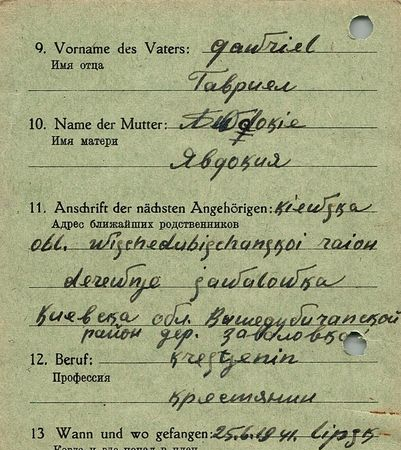 9. Vorname des Vaters: gawriel
Имя отца
Гавриел
10. Name der Mutter:
Имя матери
Явдокия
11. Anschrift der nächsten Angehörigen: kiewska
Адрес ближайших родственников
obl. wischedubischanskoi raion
derewnja sawalowka
Киевска обл. Вишедубичанской
район дер. заваловка
12. Beruf: krestjenin
Профессия
крястянин
13 Wann und wo gefangen: 25.6.1941. lipsk